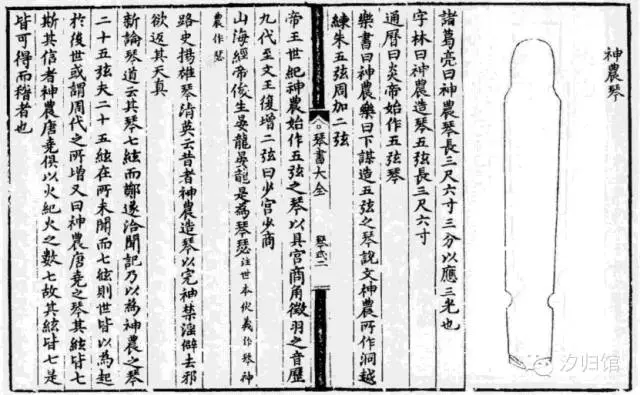 神農琴
諸葛亮曰神農琴長三尺六寸三分以應三光也
字林曰神農造琴五弦長三尺六寸
通曆曰炎帝始作五弦琴
樂書曰神農樂曰下謀造五弦之琴說文神農所作洞越
練朱五弦周加二弦
琴書大全
琴式二
帝王世紀神農始作五弦之琴以具宮商角徵羽之音歷
九代至文王復增二弦曰少宮少商
山海經帝俊生晏龍晏龍是為琴瑟注世本伏羲作琴神
農作瑟
路史揚雄琴清英云昔者神農造琴以定神禁淫僻去邪
欲返其天真
新論琴道云其琴七絃而鄭遂洽聞記乃以為神農之琴
二十五弦夫二十五絃在所未聞而七絃則世皆以為起
於後世或謂周代之所增又曰神農唐堯之琴其絃皆七
斯其信者神農唐堯俱以火紀火之數七故其絃皆七是
皆可得而稽者也
汐归馆